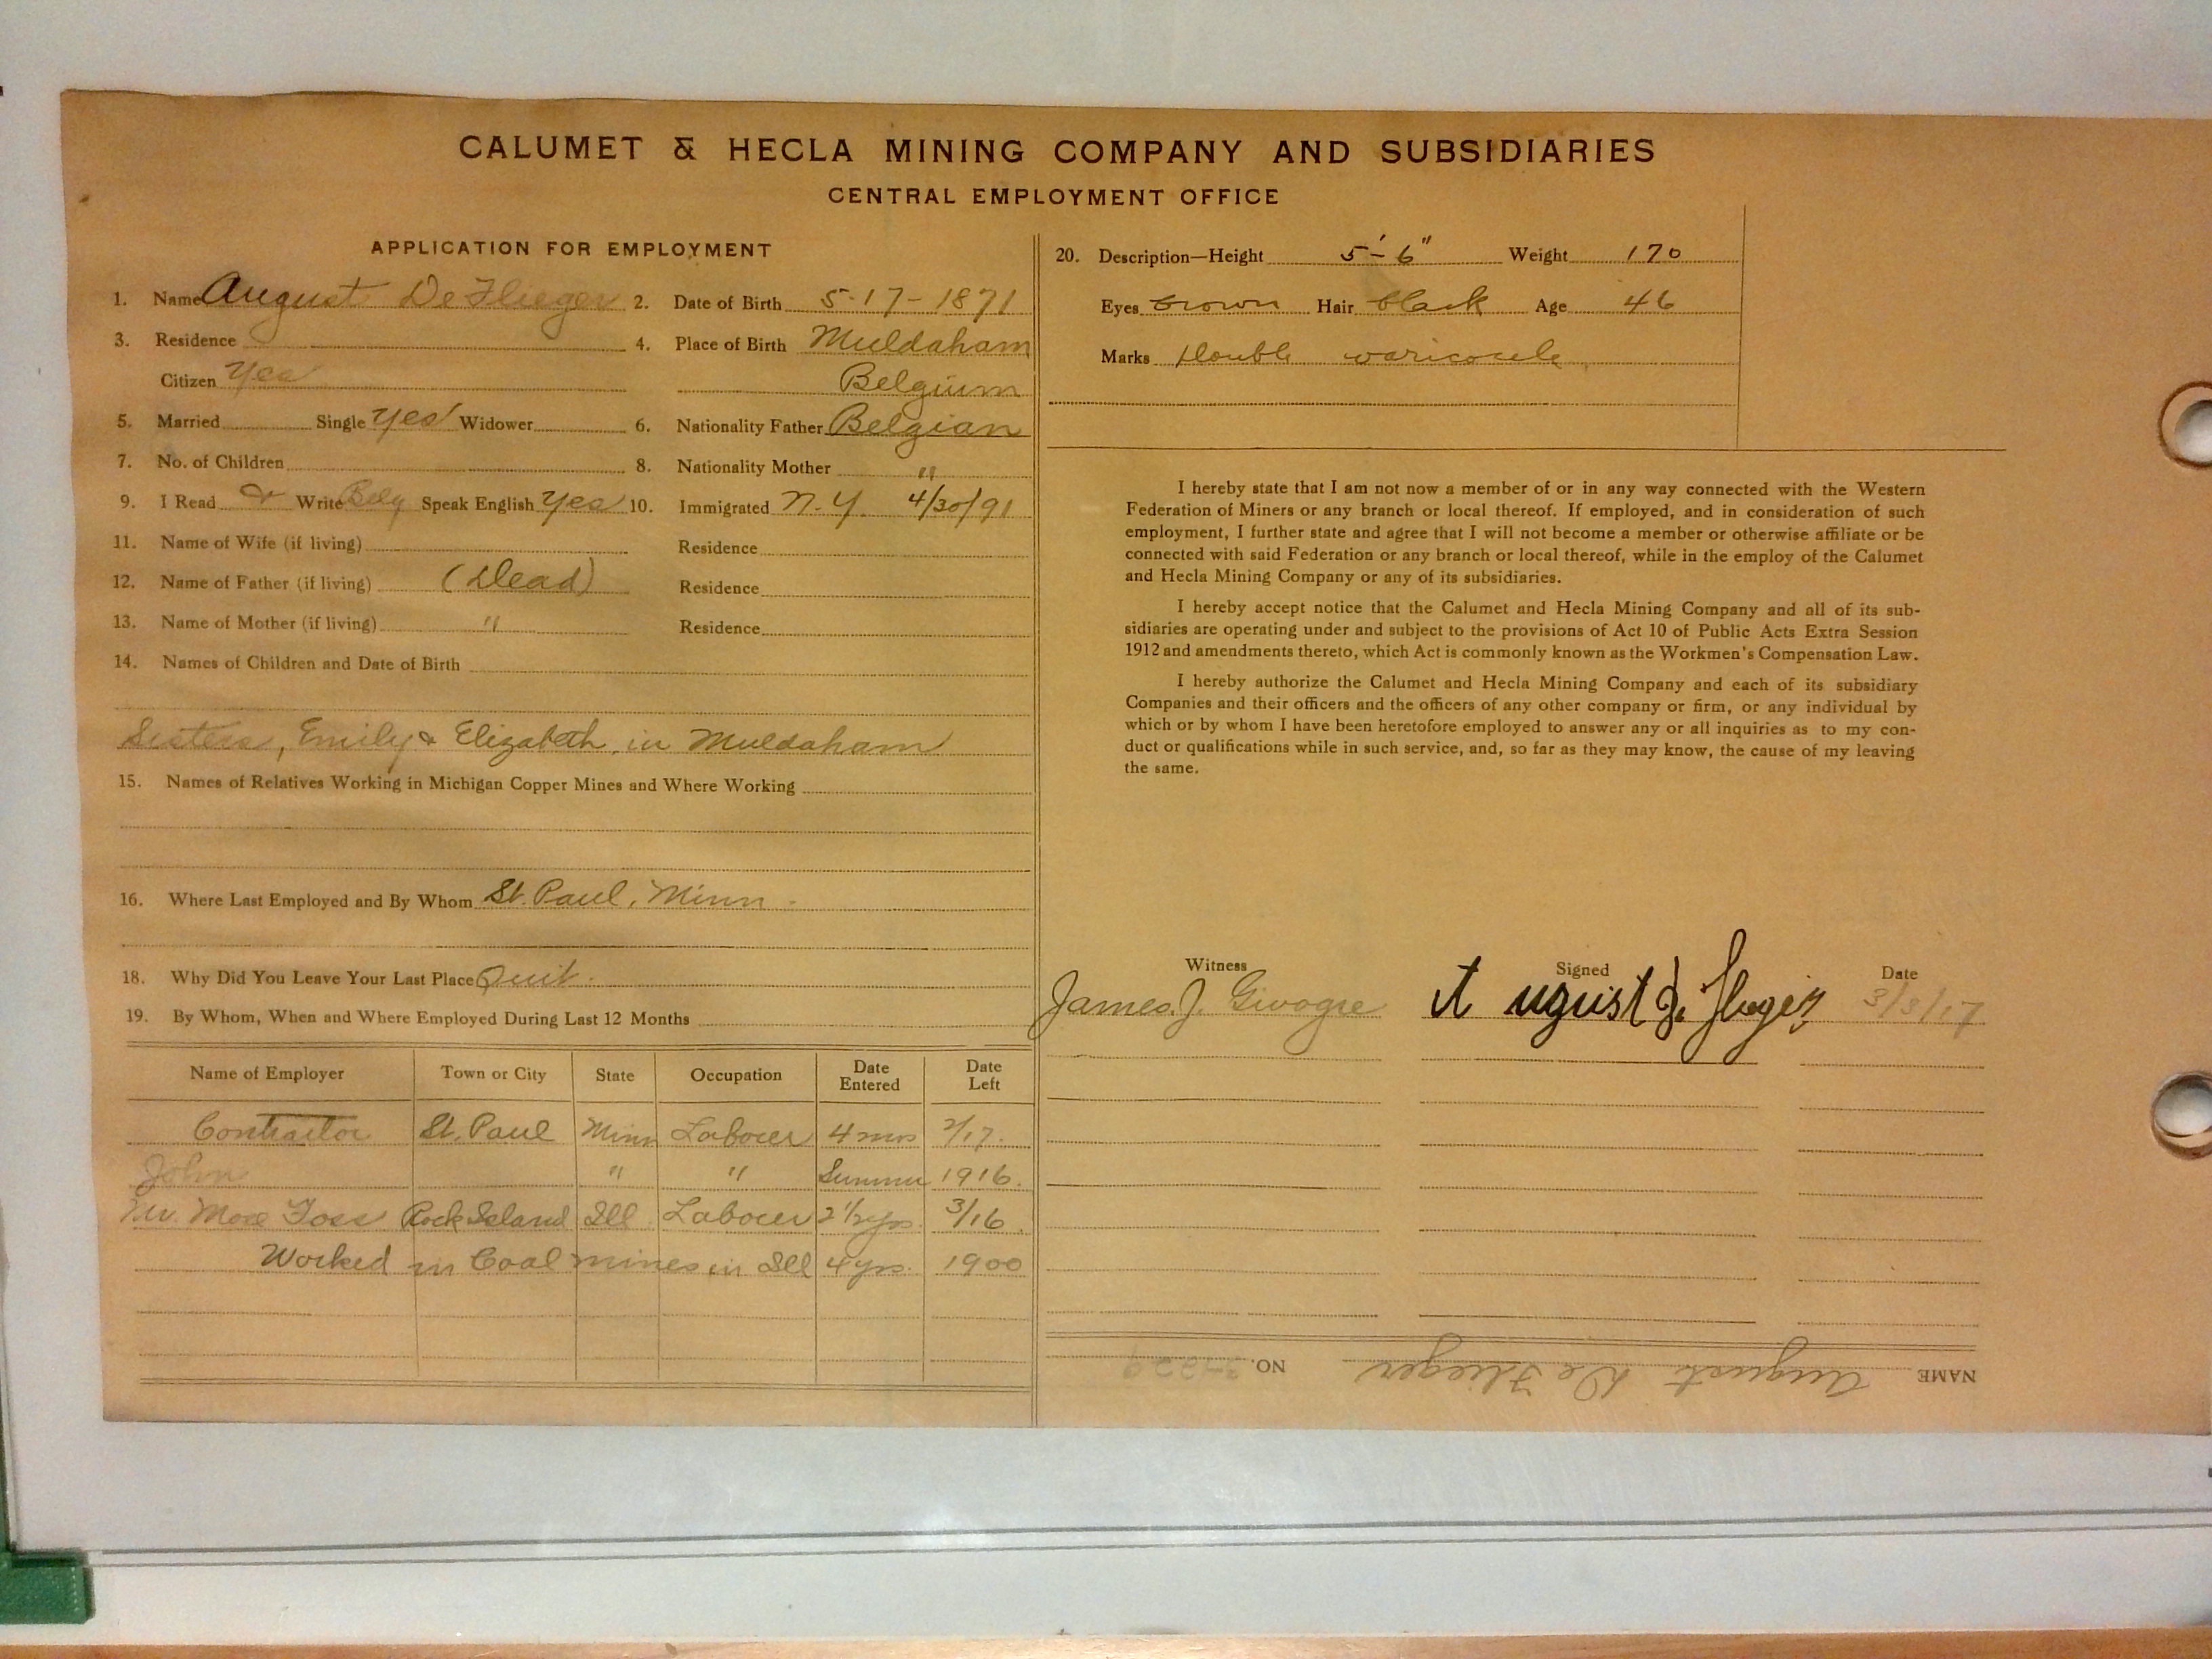 CALUMET & HECLA MINING COMPANY AND SUBSIDIARIES
CENTRAL EMPLOYMENT OFFICE
APPLICATION FOR EMPLOYMENT
1. Name August De Flieger 2. Date of Birth 5-17-1871
3. Residence 4. Place of Birth Muldaham
Citizen Yes Belgium
5. Married Single Yes Widower 6. Nationality Father Belgian
7. No. of Children 8. Nationality Mother "
9. I Read & Write Belg Speak English Yes 10. Immigrated N.Y. 4/30/91
11. Name of Wife (if living) Residence
12. Name of Father (if living) (Dead) Residence
13. Name of Mother (if living) " Residence
14. Names of Children and Date of Birth
Sisters, Emily & Elizabeth in Muldaham
15. Names of Relatives Working in Michigan Copper Mines and Where Working
16. Where Last Employed and By Whom St. Paul, Minn.
18. Why Did You Leave Your Last Place Quit.
19. By Whom, When and Where Employed During Last 12 Months
Name of Employer Town or City State Occupation Date Entered Date Left
Contractor St. Paul Minn Laborer 4 mos 2/17.
John " " Summer 1916.
Rock Island Ill Laborer 2 1/2 yrs. 3/16.
Worked in Coal mines in Ill 4 yrs. 1900
20. Description—Height 5'-6" Weight 170
Eyes brown Hair black Age 46
Marks Double varicocele
I hereby state that I am not now a member of or in any way connected with the Western
Federation of Miners or any branch or local thereof. If employed, and in consideration of such
employment, I further state and agree that I will not become a member or otherwise affiliate or be
connected with said Federation or any branch or local thereof, while in the employ of the Calumet
and Hecla Mining Company or any of its subsidiaries.
I hereby accept notice that the Calumet and Hecla Mining Company and all of its sub-
sidiaries are operating under and subject to the provisions of Act 10 of Public Acts Extra Session
1912 and amendments thereto, which Act is commonly known as the Workmen's Compensation Law.
I hereby authorize the Calumet and Hecla Mining Company and each of its subsidiary
Companies and their officers and the officers of any other company or firm, or any individual by
which or by whom I have been heretofore employed to answer any or all inquiries as to my con-
duct or qualifications while in such service, and, so far as they may know, the cause of my leaving
the same.
Witness Signed Date
James J. August 3/3/17
NAME August De Flieger NO.